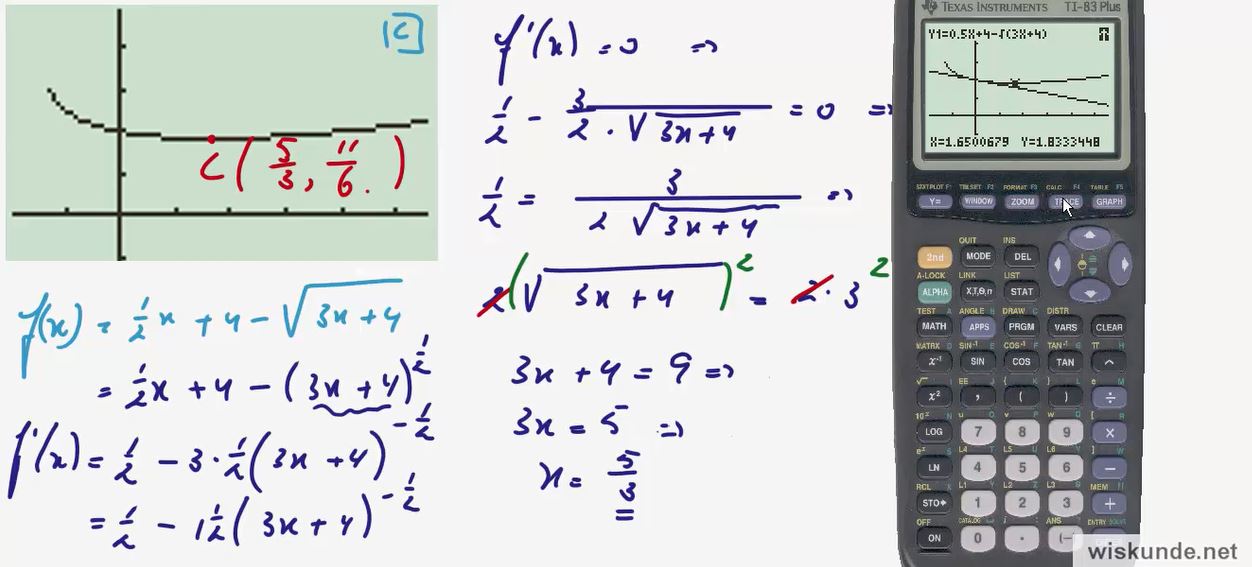 C
C ( 5/3 , 11/6 . )
f(x) = 1/2 x + 4 - √(3x + 4)
= 1/2 x + 4 - (3x + 4)^1/2
f'(x) = 1/2 - 3 · 1/2 (3x + 4)^-1/2
= 1/2 - 1 1/2 (3x + 4)^-1/2
f'(x) = 0 ⇒
1/2 - 3/(2 · √(3x + 4)) = 0 ⇒
1/2 = 3/(2 √(3x + 4)) ⇒
2 (√(3x + 4))^2 = 2 · 3^2
3x + 4 = 9 ⇒
3x = 5 ⇒
x = 5/3
TEXAS INSTRUMENTS TI-83 Plus
Y1=0.5X+4-√(3X+4)
X=1.6500679 Y=1.8333448
STAT PLOT F1 TBLSET F2 FORMAT F3 CALC F4 TABLE F5
Y= WINDOW ZOOM TRACE GRAPH
QUIT INS
2nd MODE DEL
A-LOCK LINK LIST
ALPHA X,T,Θ,n STAT
TEST A ANGLE B DRAW C DISTR
MATH APPS PRGM VARS CLEAR
MATRX D SIN⁻¹ E COS⁻¹ F TAN⁻¹ G π H
x⁻¹ SIN COS TAN ^
√ I EE J { K } L e M
x² , ( ) ÷
10ˣ N u O v P w Q [ R
LOG 7 8 9 ×
eˣ S L4 T L5 U L6 V ] W
LN 4 5 6 −
RCL X L1 Y L2 Z L3 θ MEM "
STO▸ 1 2 3 +
OFF CATALOG i : ANS ? ENTRY SOLVE
ON 0 . (−)
wiskunde.net